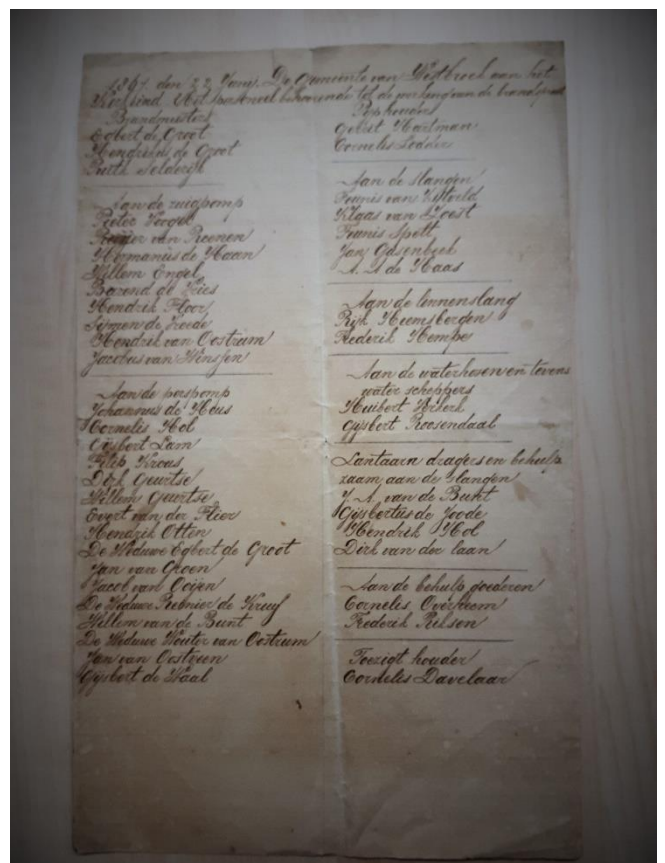 den 22 Junij De Gemeente van Westbroek aan het
Kerkeind Het personeel behoorende tot de werking van de brandspuit
Brandmeesters
Egbert de Groot
Hendrikus de Groot
Aan de zuigpomp
Pieter Vogel
Rutger van Roenen
Hermanus de Haan
Willem Engel
Barend de Vries
Hendrik Floor
Sijmen de Vreede
Hendrik van Oostrum
Jacobus van Winssen
Aan de perspomp
Johannes de Heus
Cornelis Hol
Gijsbert Lam
Filip Kroes
Dirk Geurtse
Willem Geurtse
Evert van der Flier
Hendrik Otten
De Weduwe Egbert de Groot
Jan van Groen
Jacob van Ooijen
De Weduwe Reinier de Kruijf
Willem van de Bunt
De Weduwe Wouter van Oostrum
Jan van Oostveen
Gijsbert de Waal
Pijphouders
Gobert Hartman
Cornelis Lodder
Aan de slangen
Teunis van Zijtveld
Klaas van Soest
Teunis Spelt
Jan Gasenbeek
A. A de Haas
Aan de linnenslang
Rijk Heemsbergen
Frederik Hempe
Aan de waterhozen en tevens
water scheppers
Huibert Verkerk
Gijsbert Roosendaal
Lantaarn dragers en behulp
zaam aan de slangen
J. A. van de Bunt
Gijsbertus de Joode
Hendrik Hol
Dirk van der laan
Aan de behulp goederen
Cornelis Overeem
Frederik Rebsen
Toezigt houder
Cornelis Davelaar